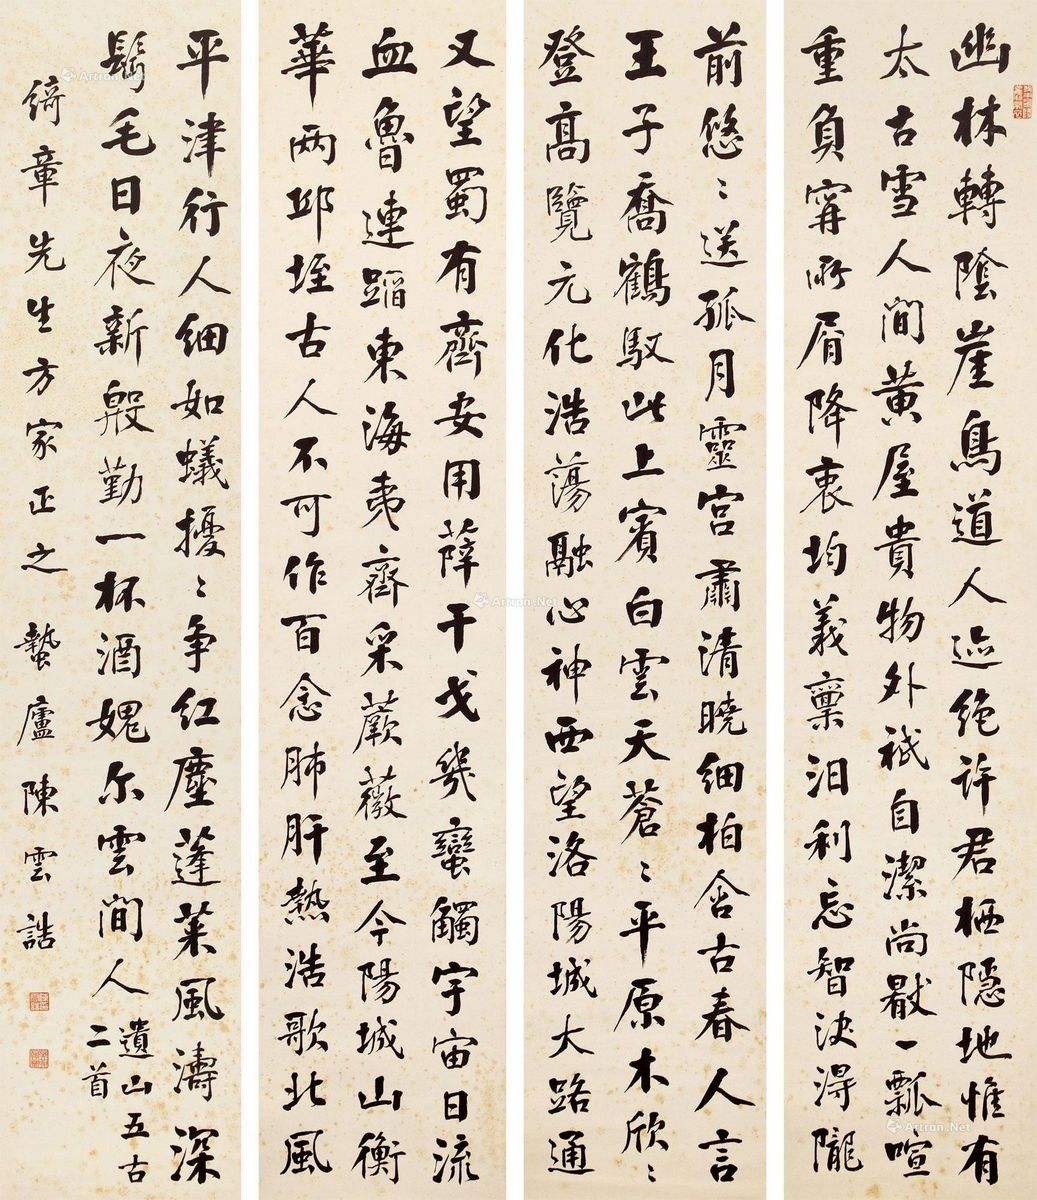 幽林轉陰崖鳥道人迹絕許君栖隱地惟有
太古雪人間黃屋貴物外祇自潔尚厭一瓢喧
重負寧所屑降衷均義稟汩利忘智決得隴
前悠〻送孤月靈宮肅清曉細柏含古春人言
王子喬鶴馭此上賓白雲天蒼〻平原木欣〻
登高覽元化浩蕩融心神西望洛陽城大路通
又望蜀有齊安用薛干戈幾蠻觸宇宙日流
血魯連蹈東海夷齊采蕨薇至今陽城山衡
華兩邱垤古人不可作百念肺肝熱浩歌北風
平津行人細如蟻擾〻爭紅塵蓬萊風濤深
鬢毛日夜新殷勤一杯酒媿尔雲間人
遺山五古
二首
綺章先生方家正之 蟄廬陳雲誥